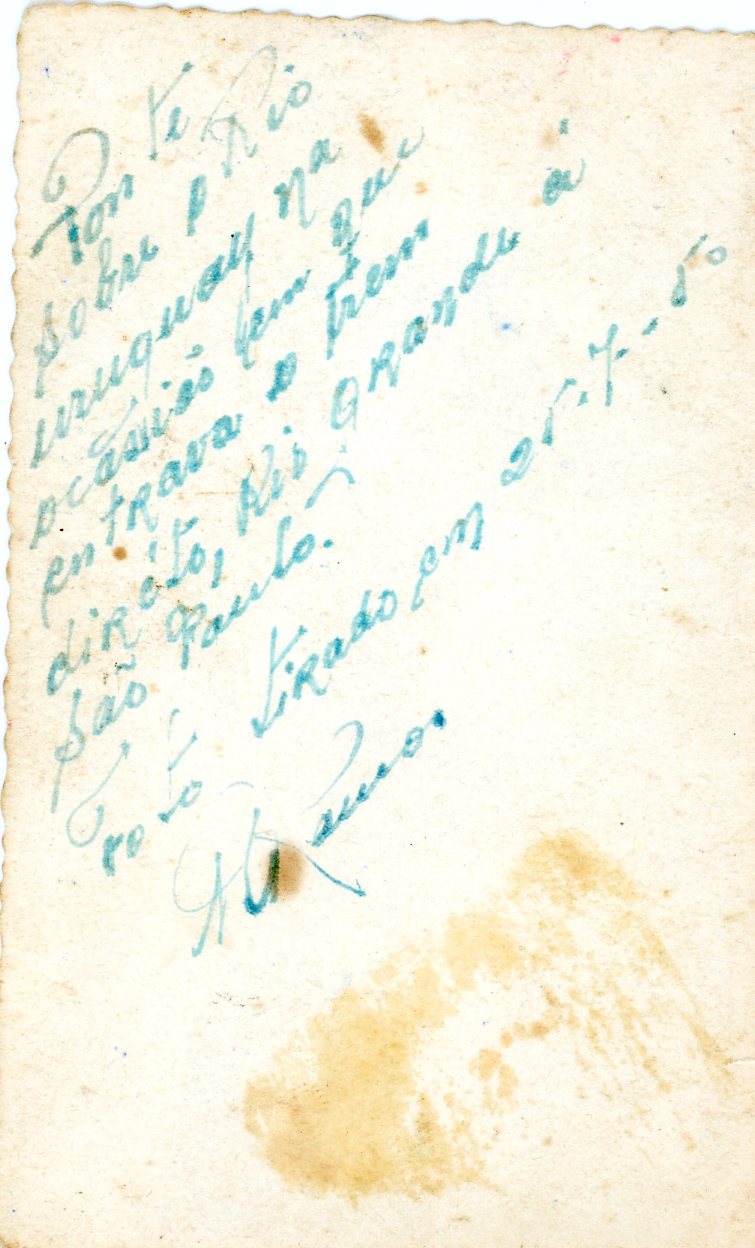 Ponte
sobre o Rio
uruguay na
ocasião em que
entrava o trem
diréto, Rio Grande á
são Paulo.
Foto tirado em 25.7.50
Ramos